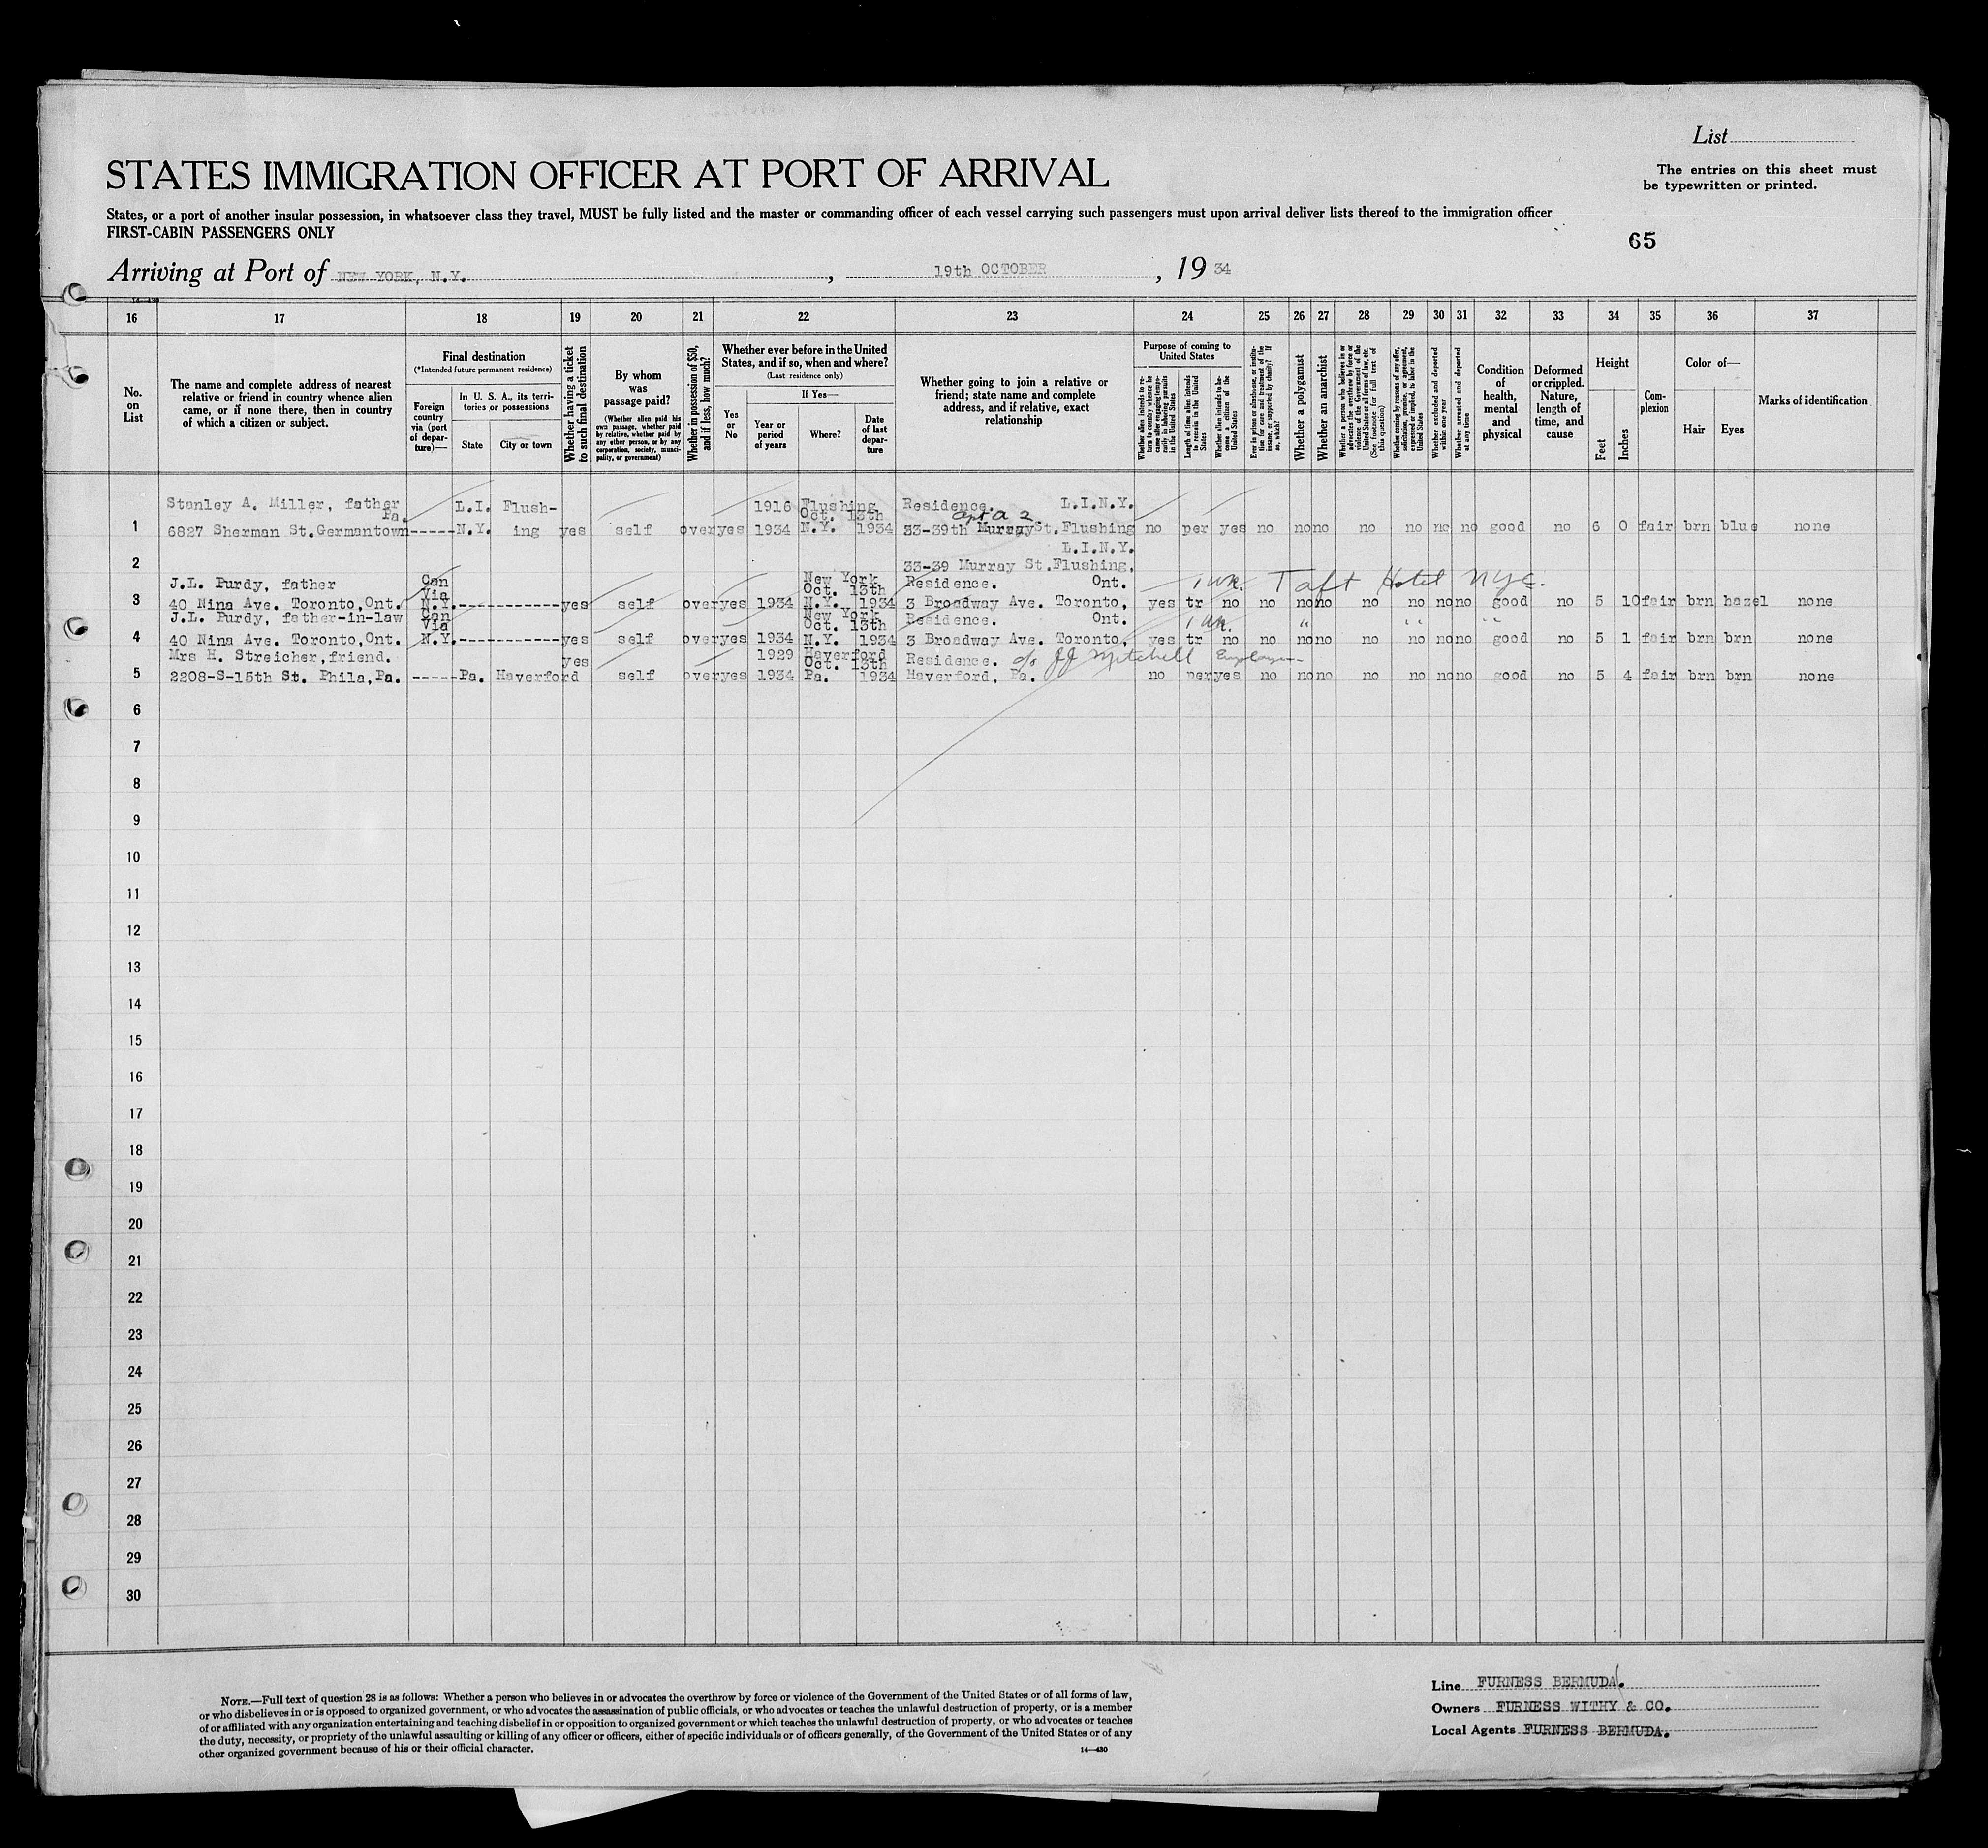 List
STATES IMMIGRATION OFFICER AT PORT OF ARRIVAL
The entries on this sheet must
be typewritten or printed.
States, or a port of another insular possession, in whatsoever class they travel, MUST be fully listed and the master or commanding officer of each vessel carrying such passengers must upon arrival deliver lists thereof to the immigration officer
FIRST-CABIN PASSENGERS ONLY
65
Arriving at Port of NEW YORK, N.Y. , 19th OCTOBER , 1934
16 17 18 19 20 21 22 23 24 25 26 27 28 29 30 31 32 33 34 35 36 37
No. on List
The name and complete address of nearest relative or friend in country whence alien came, or if none there, then in country of which a citizen or subject.
Final destination
(*Intended future permanent residence)
Foreign country via (port of departure)—
In U. S. A., its territories or possessions
State
City or town
Whether having a ticket to such final destination
By whom was passage paid?
(Whether alien paid his own passage, whether paid by relative, whether paid by any other person, or by any corporation, society, municipality, or government)
Whether in possession of $50, and if less, how much?
Whether ever before in the United States, and if so, when and where?
(Last residence only)
Yes or No
If Yes—
Year or period of years
Where?
Date of last departure
Whether going to join a relative or friend; state name and complete address, and if relative, exact relationship
Purpose of coming to United States
Whether alien intends to return to country whence he came after engaging temporarily in laboring pursuits in the United States
Length of time alien intends to remain in the United States
Whether alien intends to become a citizen of the United States
Ever in prison or almshouse, or institution for care and treatment of the insane, or supported by charity? If so, which?
Whether a polygamist
Whether an anarchist
Whether a person who believes in or advocates the overthrow by force or violence of the Government of the United States or all forms of law, etc. (See footnote for full text of this question)
Whether coming by reasons of any offer, solicitation, promise, or agreement, expressed or implied, to labor in the United States
Whether excluded and deported within one year
Whether arrested and deported at any time
Condition of health, mental and physical
Deformed or crippled. Nature, length of time, and cause
Height
Feet
Inches
Complexion
Color of—
Hair
Eyes
Marks of identification
Stanley A. Miller, father L.I. Flush- 1916 Flushing Residence. L.I.N.Y.
Pa. Oct. 13th apt a 2
1 6827 Sherman St. Germantown-----N.Y. ing yes self over yes 1934 N.Y. 1934 33-39th Murray St. Flushing no per yes no no no no no no no good no 6 0 fair brn blue none
L.I.N.Y.
2 33-39 Murray St. Flushing,
J.L. Purdy, father Can New York Residence. Ont. 1 wk. Taft Hotel NYC.
Via Oct. 13th
3 40 Nina Ave. Toronto, Ont. N.Y.------------yes self over yes 1934 N.Y. 1934 3 Broadway Ave. Toronto, yes tr no no no no no no no no good no 5 10 fair brn hazel none
J.L. Purdy, father-in-law Can New York Residence. Ont. 1 wk. " " "
Via Oct. 13th
4 40 Nina Ave. Toronto, Ont. N.Y.------------yes self over yes 1934 N.Y. 1934 3 Broadway Ave. Toronto, yes tr no no no no no no no no good no 5 1 fair brn brn none
Mrs H. Streicher, friend. yes 1929 Haverford Residence. c/o JJ Mitchell Employer
Oct. 13th
5 2208-S-15th St. Phila, Pa. -----Pa. Haverford self over yes 1934 Pa. 1934 Haverford, Pa. no per yes no no no no no no no good no 5 4 fair brn brn none
6
7
8
9
10
11
12
13
14
15
16
17
18
19
20
21
22
23
24
25
26
27
28
29
30
NOTE.—Full text of question 28 is as follows: Whether a person who believes in or advocates the overthrow by force or violence of the Government of the United States or of all forms of law,
or who disbelieves in or is opposed to organized government, or who advocates the assassination of public officials, or who advocates or teaches the unlawful destruction of property, or is a member
of or affiliated with any organization entertaining and teaching disbelief in or opposition to organized government or which teaches the unlawful destruction of property, or who advocates or teaches
the duty, necessity, or propriety of the unlawful assaulting or killing of any officer or officers, either of specific individuals or of officers generally, of the Government of the United States or of any
other organized government because of his or their official character.
14—430
Line FURNESS BERMUDA.
Owners FURNESS WITHY & CO.
Local Agents FURNESS BERMUDA.